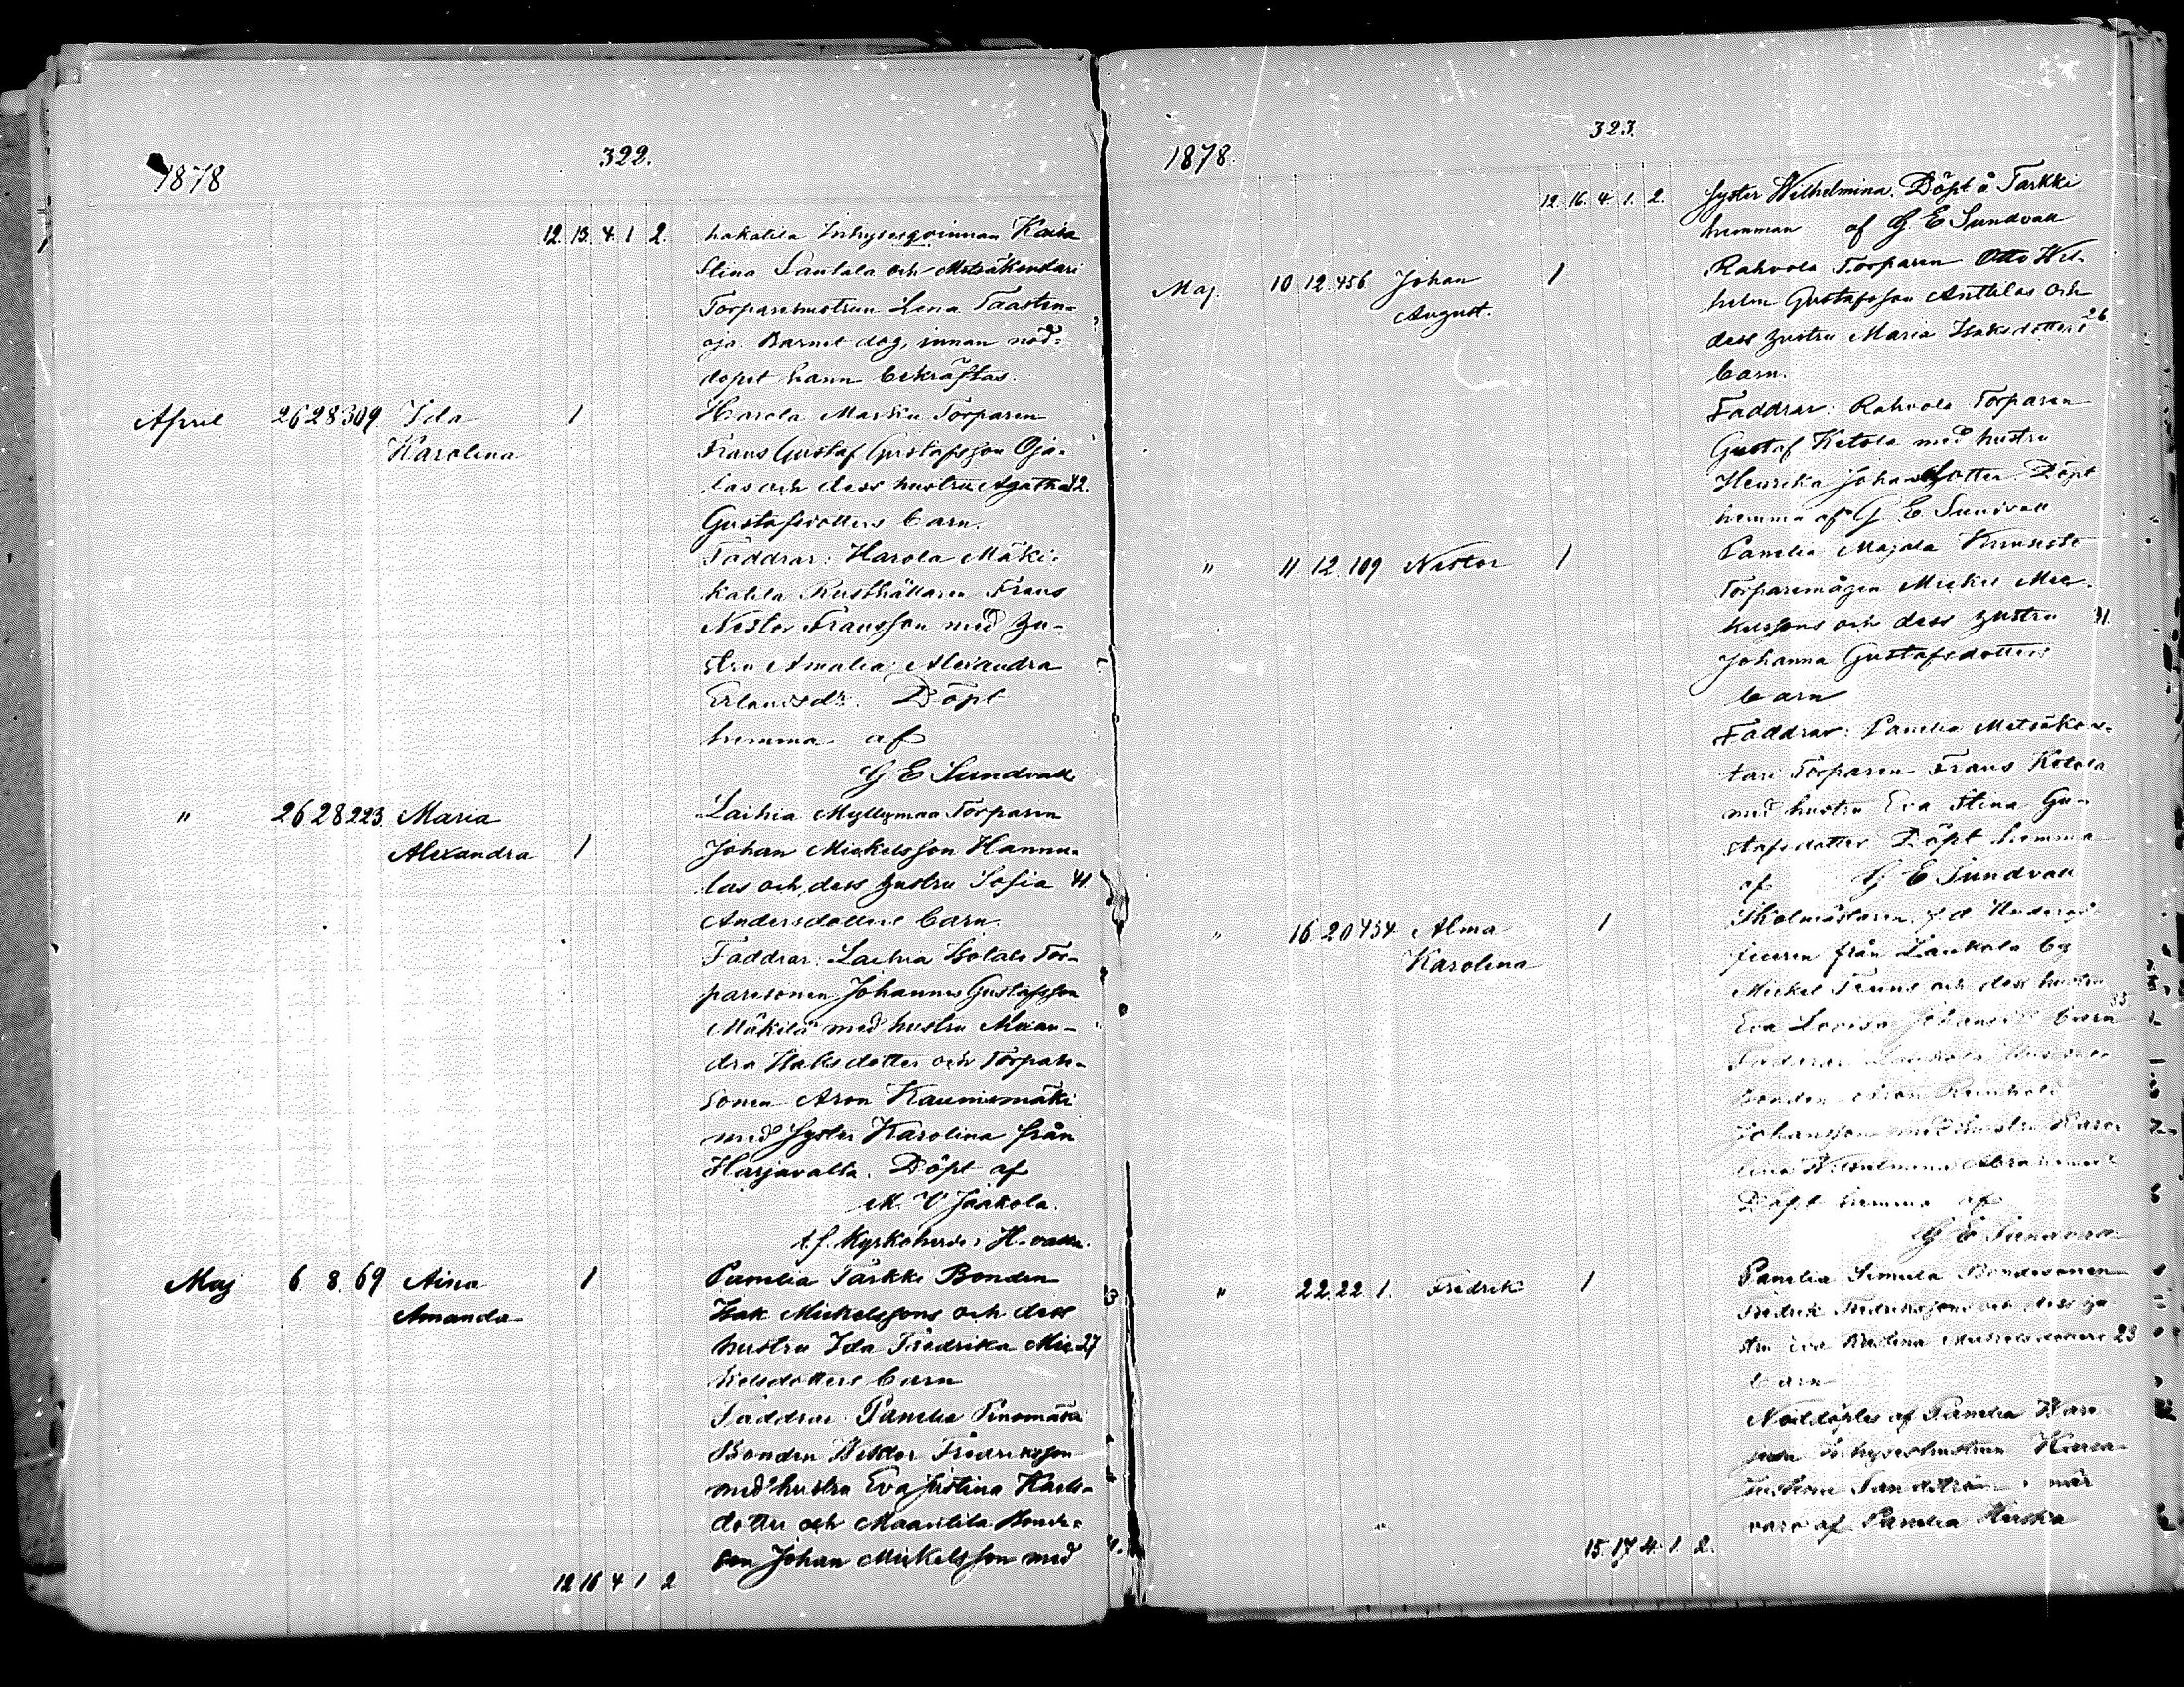 322.
1878
12. 15. 4. 1 2. hakatila Inhysesqvinnan Kaisa
Stina Santala och Metsäkentari
Torparehustrun Lena Taasten-
oja. Barnet dog, innan nöd-
dopet hann bekräftas.
April 26 28 309 Ida 1 Harola Marku Torparen
Karolina Frans Gustaf Gustafsson Oja-
las och dess hustru Agatha 42.
Gustafsdotters barn.
Faddrar: Harola Mäki-
katila Rusthållaren Frans
Nestor Fransson med hu-
stru Amalia Alexandra
Erlandsdr. Döpt
hemma af
G E Sundvall
" 26 28 223 Maria Laihia Myllymaa Torparen
Alexandra 1 Johan Mickelsson Hannu-
las och dess hustru Sofia 41.
Andersdotters barn.
Faddrar: Laihia Isotalo Tor-
paresonen Johannes Gustafsson
Mäkilä med hustru Alexan-
dra Isaksdotter och Torpare-
sonen Aron Kaunismäki
med syster Karolina från
Harjavalta. Döpt af
M. V Jaakola.
t.f. Kyrkoherde i H-valta.
Maj 6. 8. 69 Aina 1 Panelia Tarkki Bonden
Amanda Isak Mickelssons och dess
hustru Ida Fredrika Mic- 27
kelsdotters barn
Faddrar Panelia Pinomäsä
Bonden Viktor Fredriksson
med hustru Eva Justina Karls-
dotter och Maantila Bonde-
son Johan Mickelsson med
12 16 4 1 2
323.
1878.
12. 16. 4. 1. 2. syster Wilhelmina. Döpt å Tarkki
hemman af G. E Sundvall
Maj. 10 12. 456 Johan 1 Rahvola Torparen Otto Wil-
August. helm Gustafsson Anttilas och
dess hustru Maria Isaksdotters 26.
barn.
Faddrar: Rahvola Torparen
Gustaf Ketola med hustru
Henrika Johansdotter. Döpt
hemma af G E. Sundvall
" 11. 12. 109 Nestor 1 Panelia Majala
Torparemågen Mickel Mic-
kelssons och dess hustru 41.
Johanna Gustafsdotters
barn
Faddrar: Panelia Metsäken-
tari Torparen Frans Kotola
med hustru Eva Stina Gu-
stafsdotter Döpt hemma
af G E Sundvall
" 16. 20 454 Alma 1 Skolmästaren f d Underof-
Karolina ficeren från Laukola by
Mickel och dess hustru
Eva Lovisa barn 35.
Faddrar Laukola
Bonden Reinhold
Johansson med hustru Karo-
lina Wilhelmina
Döpt hemma af
G E Sundvall
" 22. 22 1. Fredrik 1 Panelia Simula Bondesonen
Fredrik Fredrikssons och dess hu-
stru Eva Mickelsdotters 23
barn
Nöddöptes af Panelia
Inhyseshustrun
när-
varo af Panelia
15. 17 4. 1. 2.